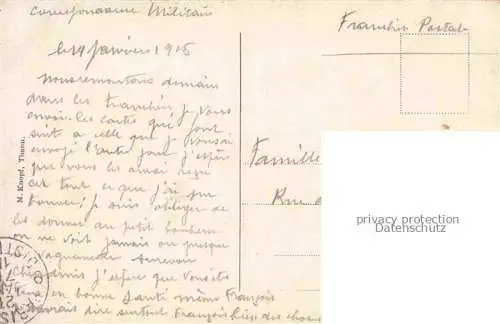 Correspondance Militaire
Franchise Postale
le 14 Janvier 1915
Nous remontons demain
dans les tranchées, je vous
envoi les cartes qui font
suite a celle que je vous ai
envoyé l'autre jour j'espère
que vous les ainsi reçu
cet tout ce que j'ai pu
je suis obliger de
les donner au petit bonheur
on ne voit jamais ou presque
vaguement aurevoir
Chers amis j'espère que vous êtes
en bonne santé même François
dire surtout François bien des choses
Famille
Rue
M. Knopf, Thann.
privacy protection
Datenschutz